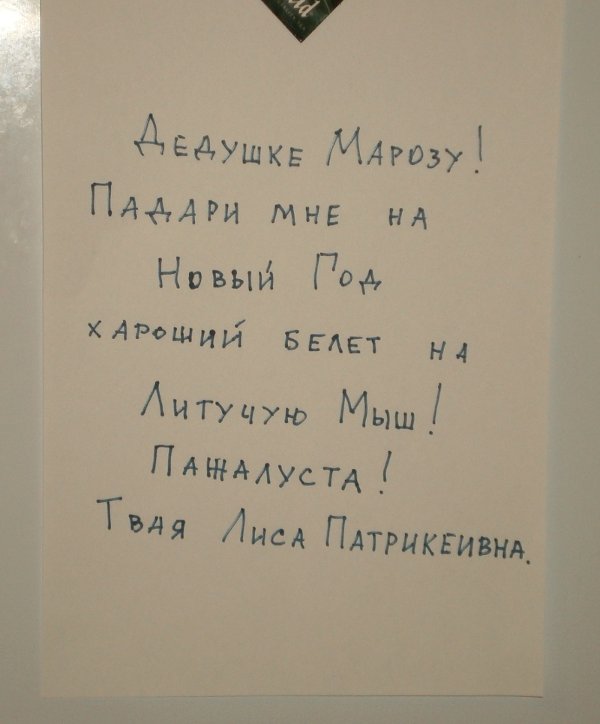 ld
Дедушке Марозу!
Падари мне на
Новый Год
хароший белет на
Литучую Мыш!
Пажалуста!
Твая Лиса Патрикеивна.